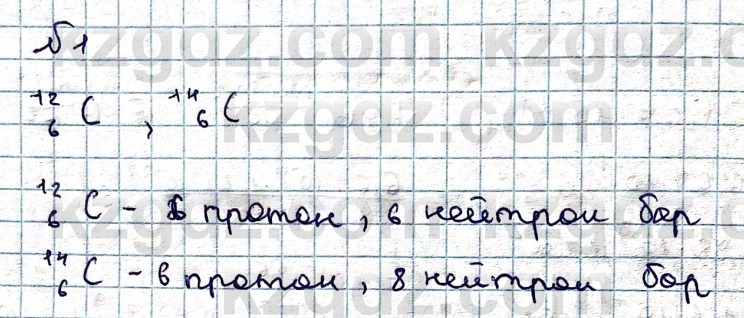 №1
¹²₆C, ¹⁴₆C
¹²₆C - 6 протон, 6 нейтрон бар
¹⁴₆C - 6 протон, 8 нейтрон бар
kzgdz.com